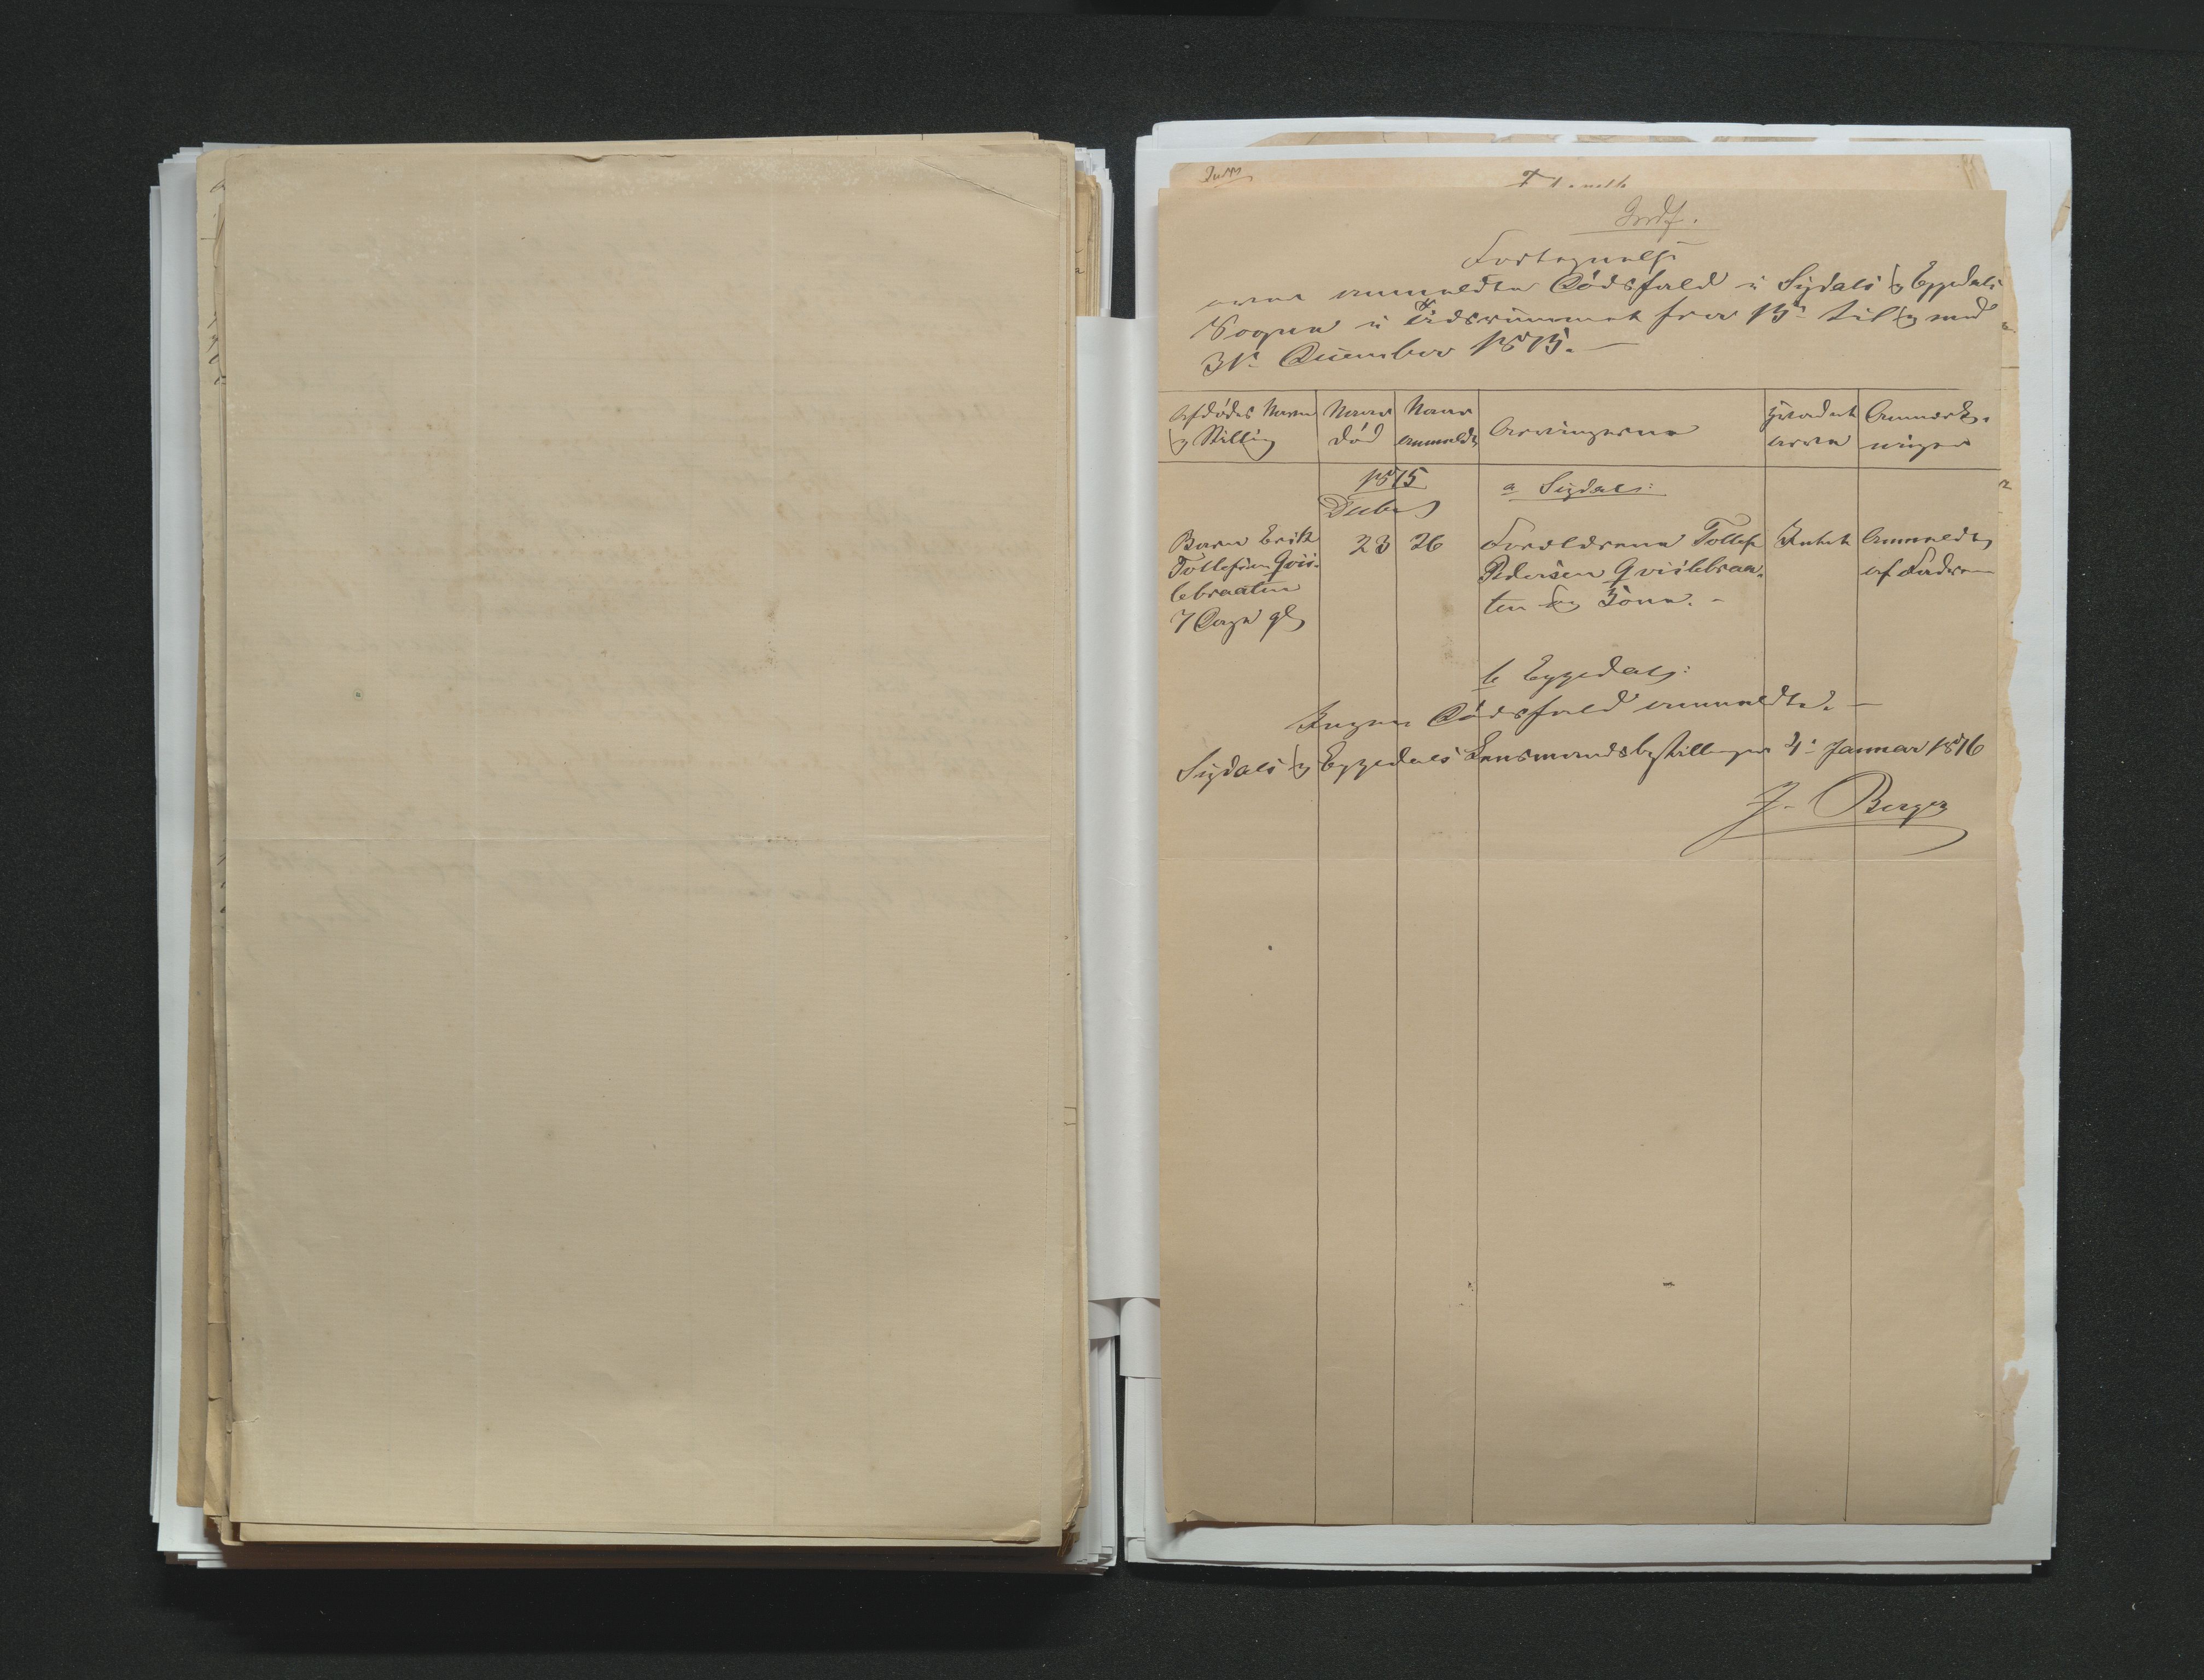 Indf.
Fortegnelse
over anmeldte Dødsfald i Sigdals og Eggedals
Sogne i Tidsrummet fra 15de til og med
31te December 1875.
Afdødes Navn og Stilling
Naar død
Naar anmeldt
Arvingerne
Hvad at arve
Anmærkninger
1875
Decbr
a Sigdal:
Barn Erik
Tollefsen Qvis-
lebraaten
7 Dage gl
23
26
Forældrene Tollef
Pedersen Qvislebraa-
ten og Kone.
Intet
Anmeldt
af Faderen
b Eggedal:
Ingen Dødsfald anmeldte.
Sigdals og Eggedals Lensmandsbestilling 4de Januar 1876
J. Berger